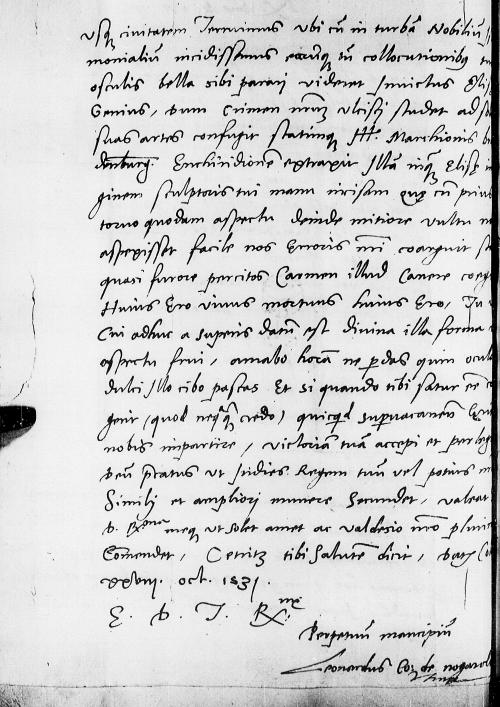 Usq civitatem Terruimus ubi cū in turbā Nobiliū
monialium incidissemus eorumq tū collocutionibq
osculis bella sibi parari videret Invictus Elis
Genius, dum Crimen nrm ulcisci studet ad
suas artes confugit statimque Ill. Marchionis
denburg. Enchiridionem extraxit Illā inq Elisē
ginem sculptoris tui manu incisam que cū prius
torvo quodam aspectu deinde mitiore vultu
aspexisset facile nos Erroris nri coarguit
quasi furore percitos Carmen illud Canere coeg
Huius Ero vivus mortuus huius Ero, Tu
Cui adhuc a superis datū est divina illa forma
aspectu frui, amabo horā ne pdas quin ocul
dulci Illo cibo pascas Et si quando tibi satur
gerit (quod neqq credo) quicqd supvacaneū
nobis impartire, victoriam tuā accepi et perleg
Deū pcatus ut Indies Regem tuū vel potius
Simili et ampliori munere Secundet, valeat
D. Rma meq ut solet amet ac Valdesio nro plurim
Comendet, Cetritz tibi Salutem dicit,
xxviii. oct. 1531.
E. D. T. Rme
Perpetuū mancipiū
Leonardus Co: de nogarol